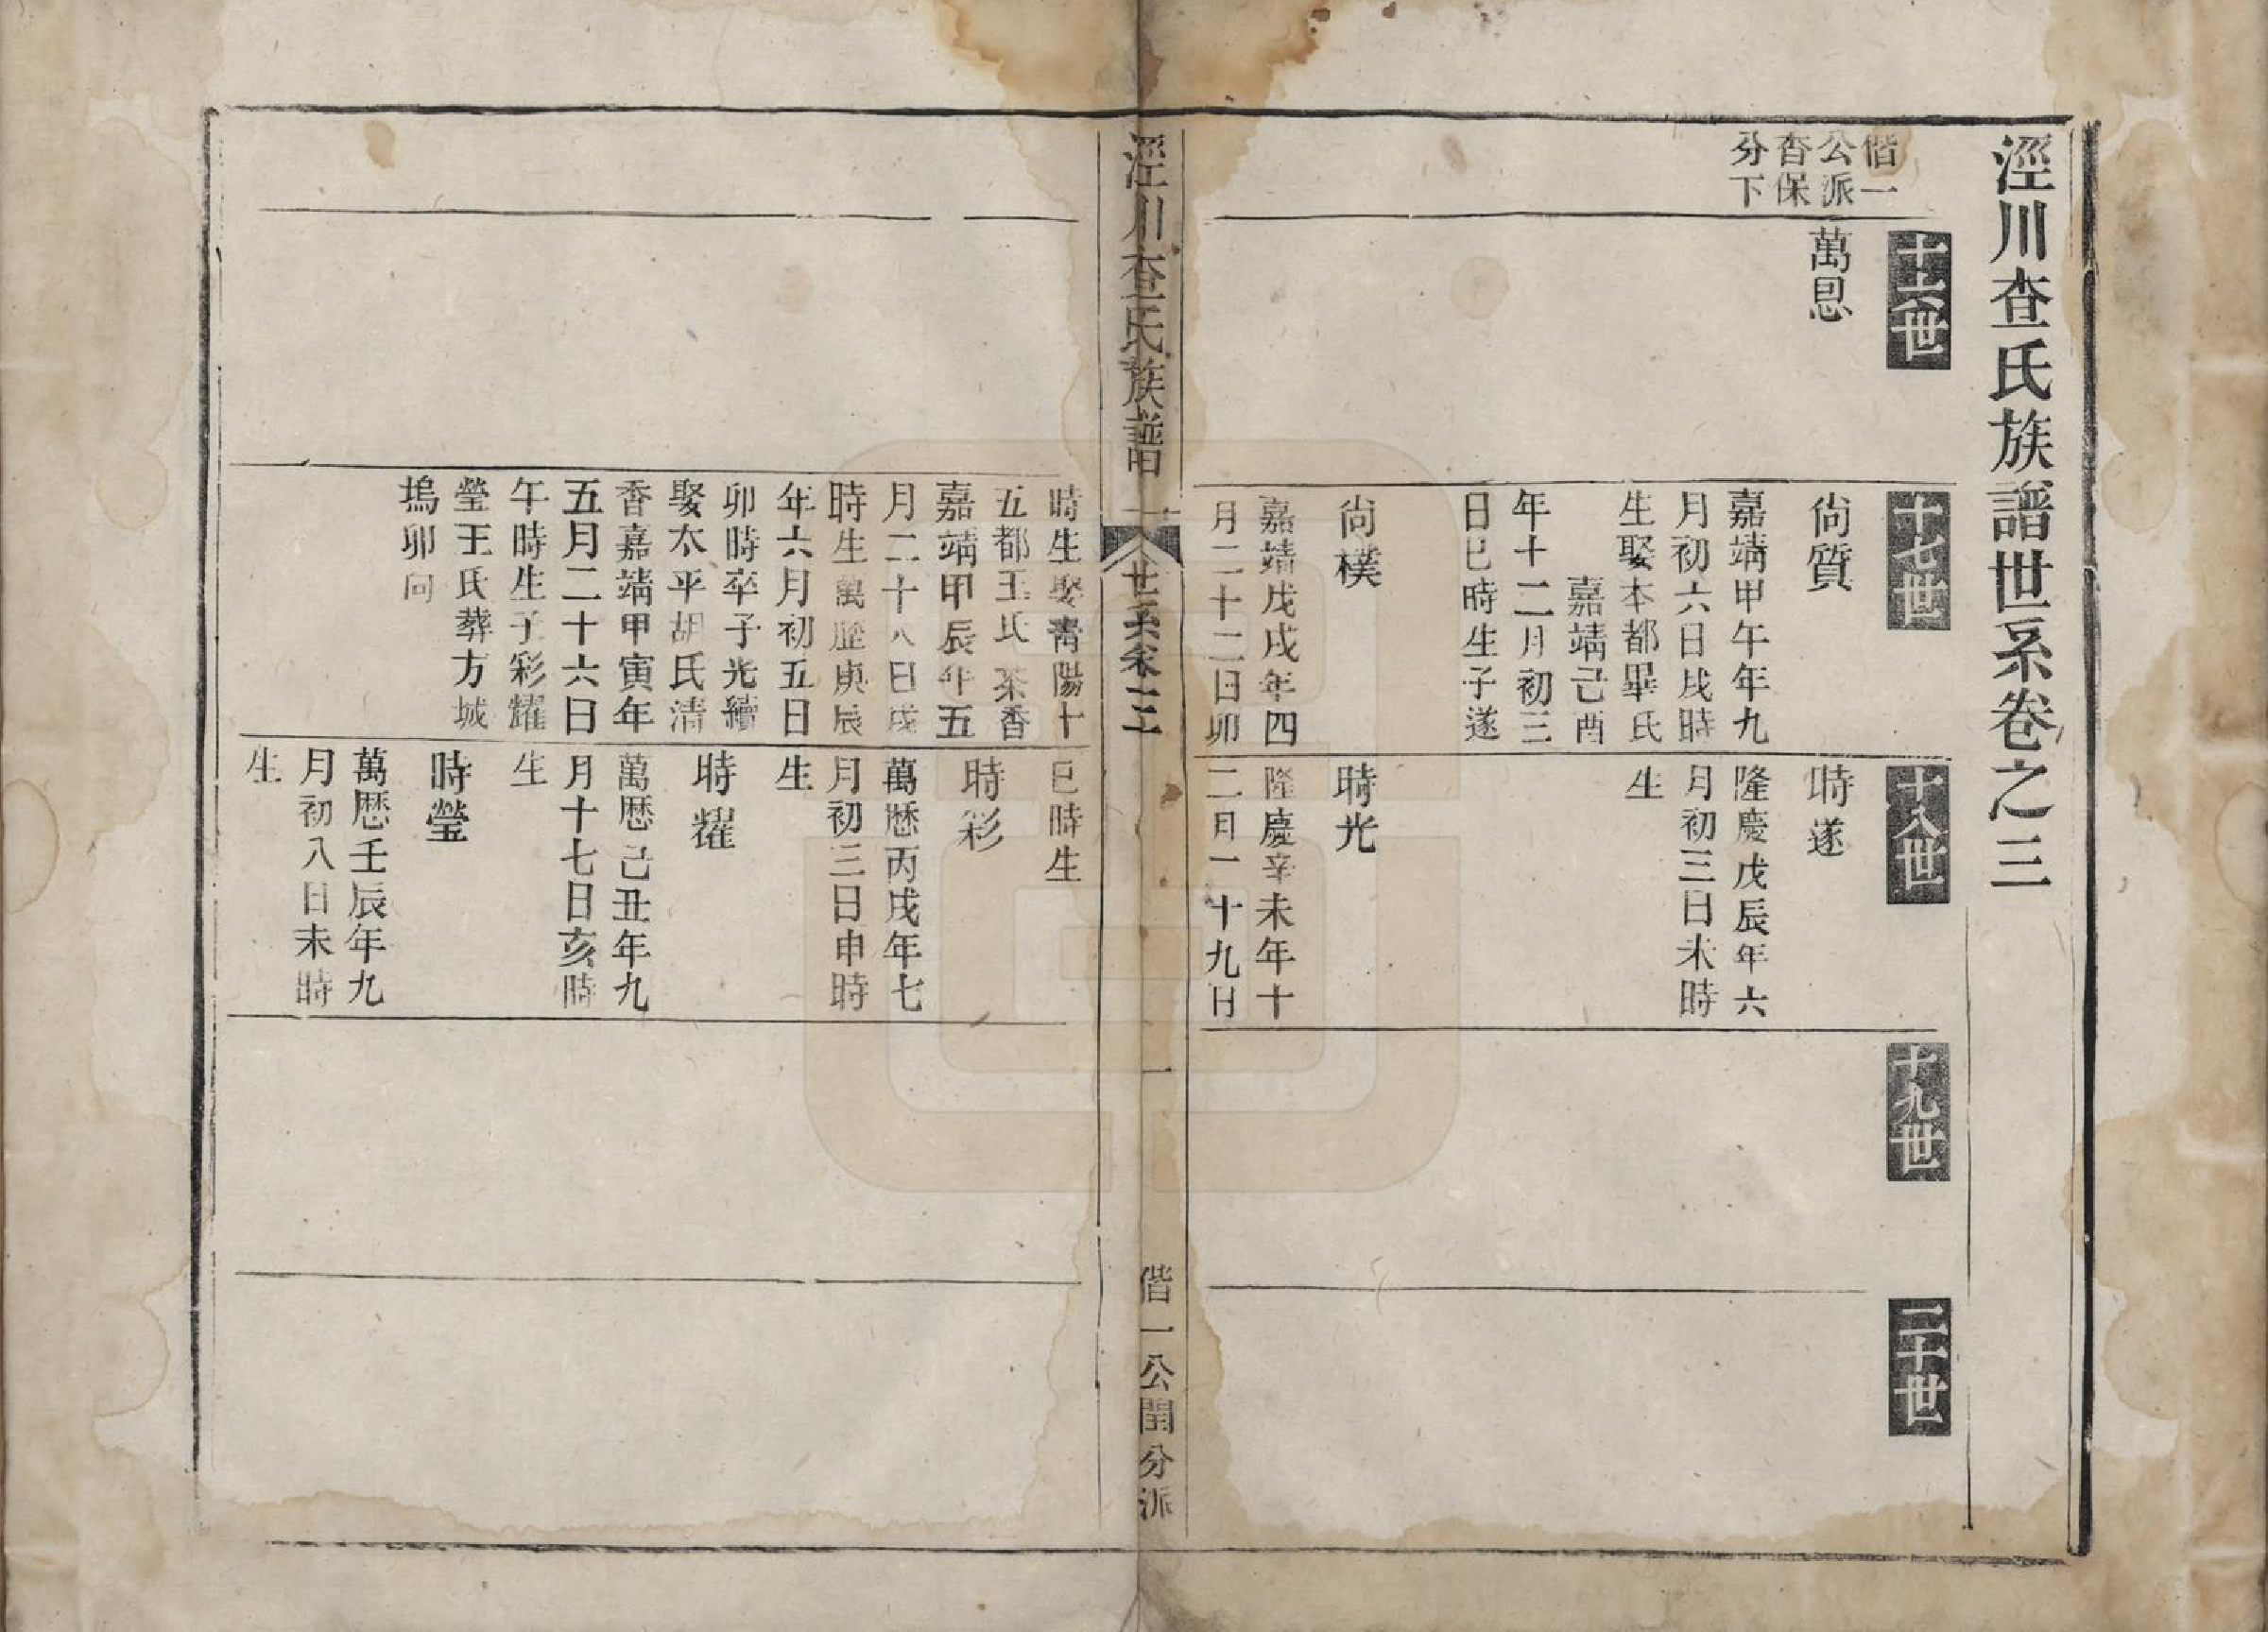 涇川查氏族譜世系卷之三
偕一
公派
杳保
分下
十六世
萬息
十七世
尙質
嘉靖甲午年九
月初六日戌時
生娶本都畢氏
嘉靖己酉
年十二月初三
日巳時生子遂
尙樸
嘉靖戊戌年四
月二十二日卯
十八世
時遂
隆慶戊辰年六
月初三日未時
生
時光
隆慶辛未年十
二月二十九日
十九世
二十世
涇川查氏族譜
世系卷三
一
偕一公閏分派
時生娶靑陽十
五都王氏茶香
嘉靖甲辰年五
月二十八日戌
時生萬歷庚辰
年六月初五日
卯時卒子光續
娶太平胡氏清
香嘉靖甲寅年
五月二十六日
午時生子彩耀
瑩王氏葬方城
塢卯向
巳時生
時彩
萬厯丙戌年七
月初三日申時
生
時耀
萬厯己丑年九
月十七日亥時
生
時瑩
萬厯壬辰年九
月初八日未時
生